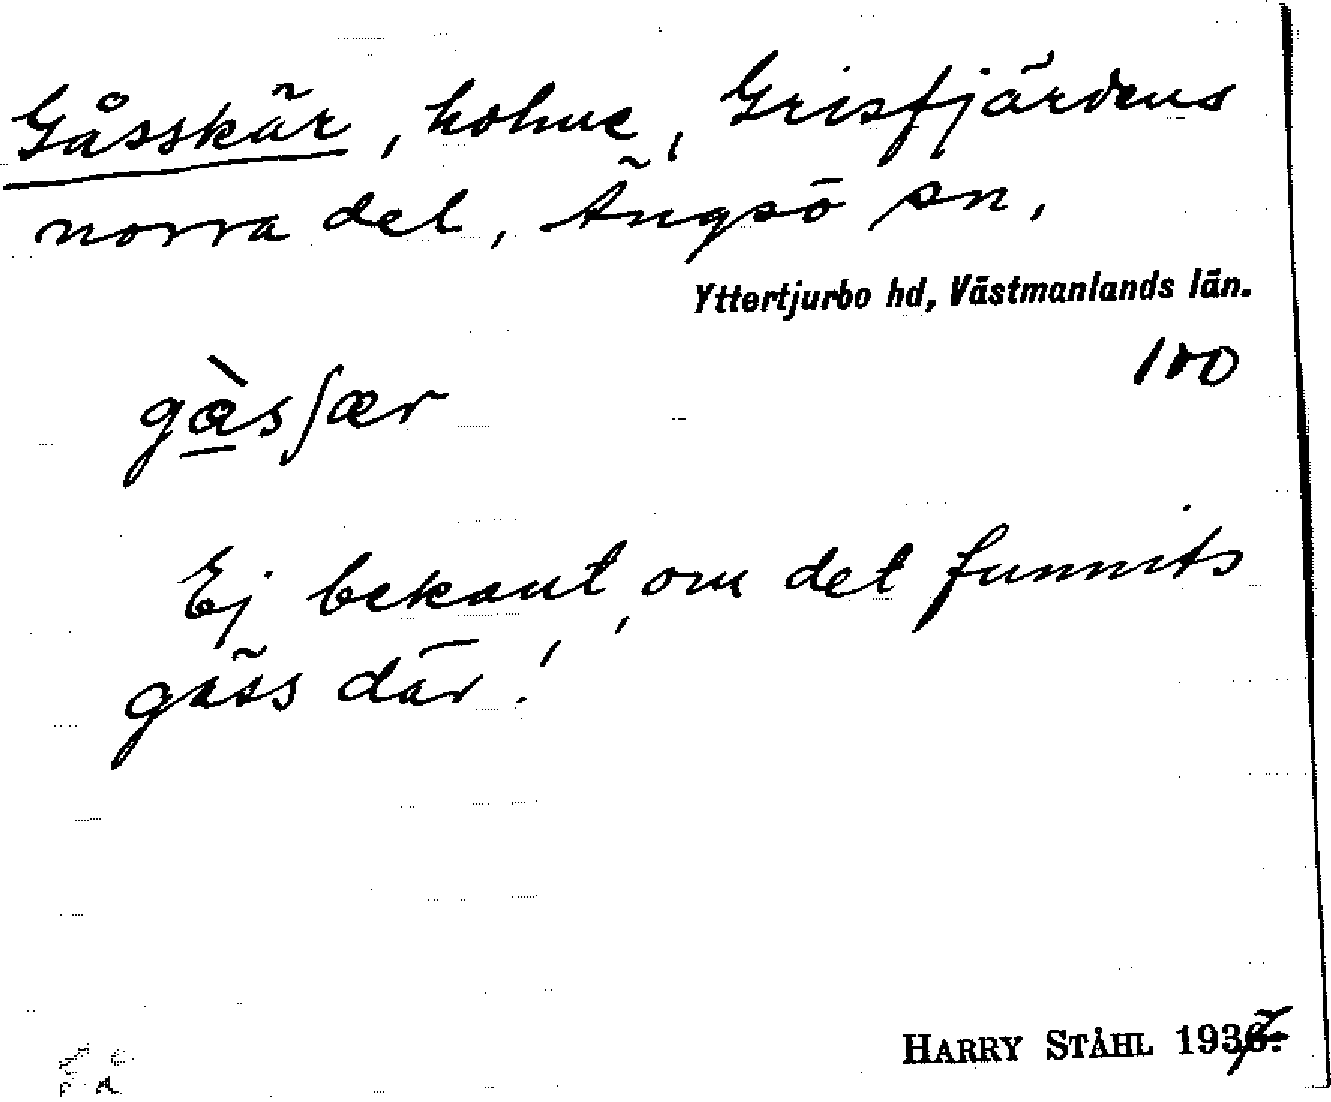 Gåsskär, holme, Grisfjärdens
norra del, Ängsö sn,
Yttertjurbo hd, Västmanlands län.
100
gàsʃær
Ej bekant, om det funnits
gäss där!
HARRY STÅHL 1937.